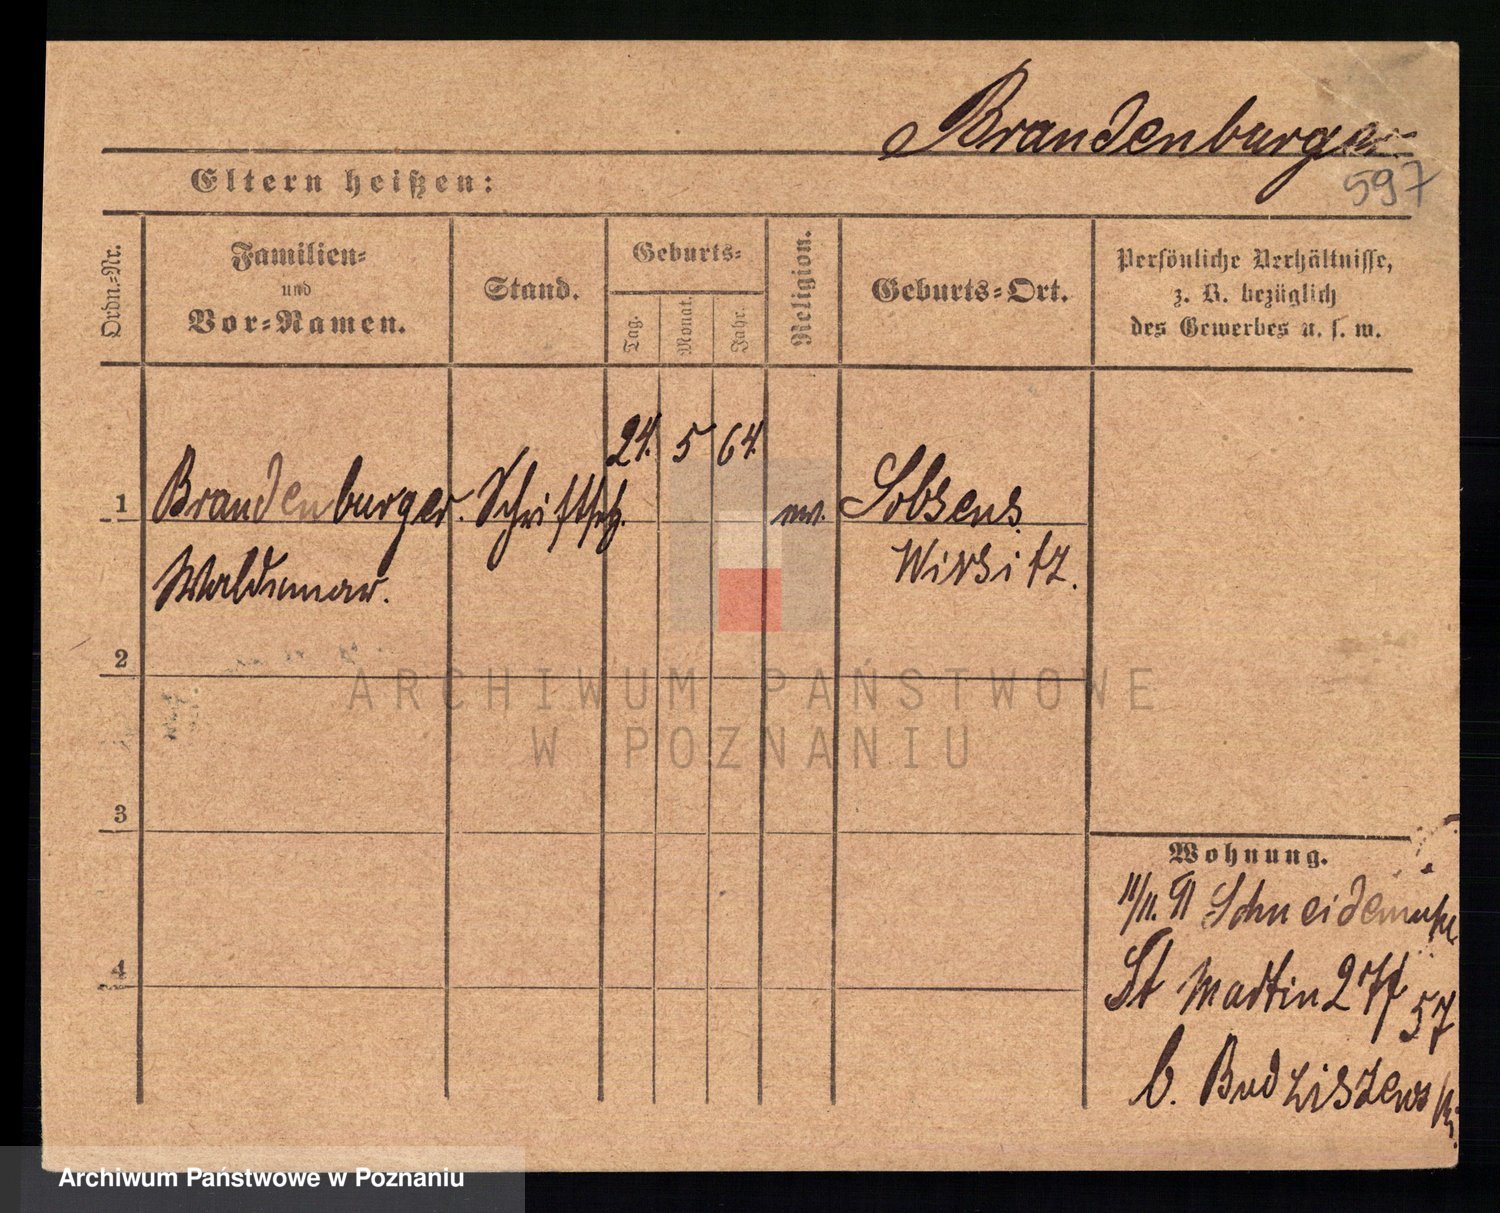 Brandenburger
597
Eltern heißen:
Ordn.-Nr.
Familien-
und
Vor-Namen.
Stand.
Geburts-
Tag.
Monat.
Jahr.
Religion.
Geburts-Ort.
Persönliche Verhältnisse,
z. B. bezüglich
des Gewerbes u. s. w.
1
Brandenburger. Schriftsetz. 24. 5 64. ev. Lobsens
Waldemar. Wirsitz.
2
ARCHIWUM PAŃSTWOWE
W POZNANIU
3
4
Wohnung.
11/11. 91 Schneidemühl
St Martin 27
57
b. Budziszewski.
Archiwum Państwowe w Poznaniu